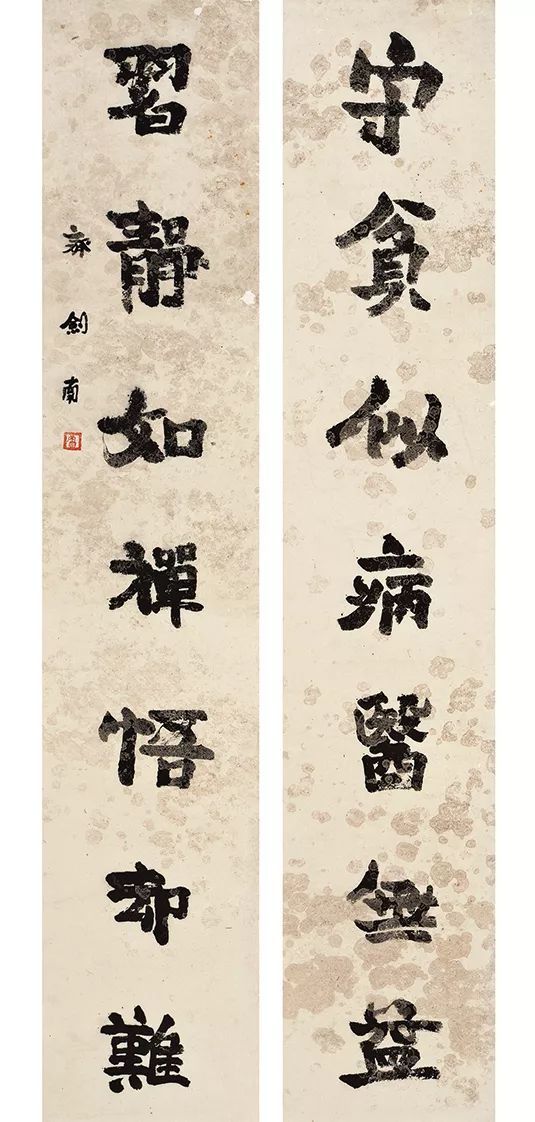 守貧似病醫無益
習靜如禪悟却難
齋劍南